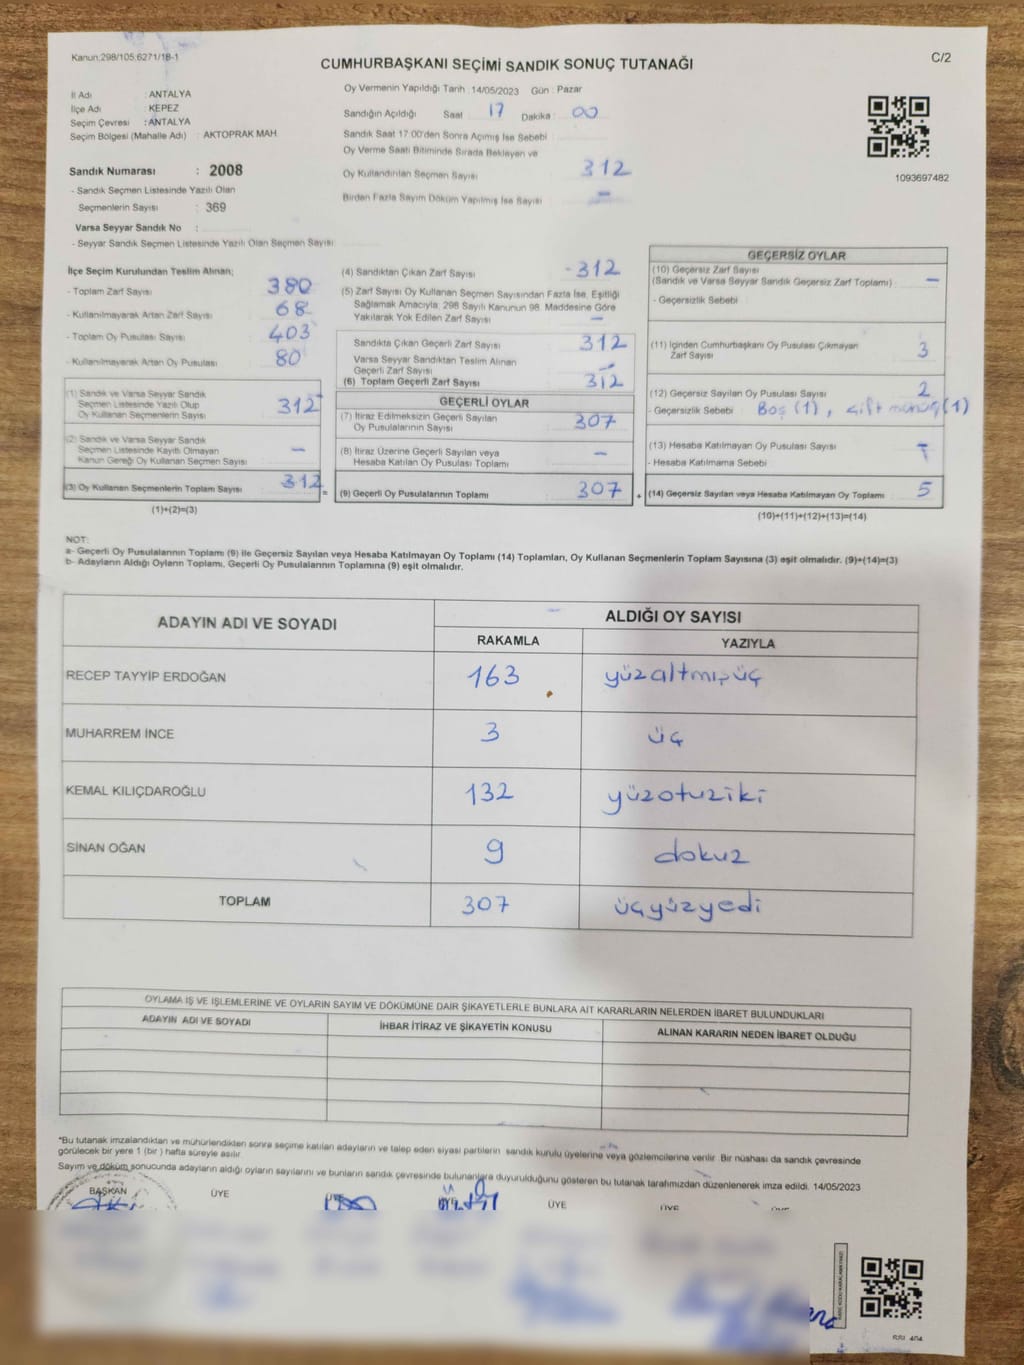 Kanun:298/105,6271/18-1
C/2
CUMHURBAŞKANI SEÇİMİ SANDIK SONUÇ TUTANAĞI
İl Adı : ANTALYA
İlçe Adı : KEPEZ
Seçim Çevresi : ANTALYA
Seçim Bölgesi (Mahalle Adı) : AKTOPRAK MAH.
Sandık Numarası : 2008
- Sandık Seçmen Listesinde Yazılı Olan
Seçmenlerin Sayısı : 369
Varsa Seyyar Sandık No :
- Seyyar Sandık Seçmen Listesinde Yazılı Olan Seçmen Sayısı
Oy Vermenin Yapıldığı Tarih : 14/05/2023 Gün : Pazar
Sandığın Açıldığı Saat 17 Dakika : 00
Sandık Saat 17:00'den Sonra Açımış İse Sebebi :
Oy Verme Saati Bitiminde Sırada Bekleyen ve
Oy Kullandırılan Seçmen Sayısı 312
Birden Fazla Sayım Döküm Yapılmış İse Sayısı –
1093697482
İlçe Seçim Kurulundan Teslim Alınan;
- Toplam Zarf Sayısı 380
- Kullanılmayarak Artan Zarf Sayısı 68
- Toplam Oy Pusulası Sayısı 403
- Kullanılmayarak Artan Oy Pusulası 80
(1) Sandık ve Varsa Seyyar Sandık
Seçmen Listesinde Yazılı Olup
Oy Kullanan Seçmenlerin Sayısı 312
(2) Sandık ve Varsa Seyyar Sandık
Seçmen Listesinde Kayıtlı Olmayan
Kanun Gereği Oy Kullanan Seçmen Sayısı –
(3) Oy Kullanan Seçmenlerin Toplam Sayısı 312 =
(1)+(2)=(3)
(4) Sandıktan Çıkan Zarf Sayısı -312
(5) Zarf Sayısı Oy Kullanan Seçmen Sayısından Fazla İse, Eşitliği
Sağlamak Amacıyla, 298 Sayılı Kanunun 98. Maddesine Göre
Yakılarak Yok Edilen Zarf Sayısı –
Sandıkta Çıkan Geçerli Zarf Sayısı 312
Varsa Seyyar Sandıktan Teslim Alınan
Geçerli Zarf Sayısı –
(6) Toplam Geçerli Zarf Sayısı 312
GEÇERLİ OYLAR
(7) İtiraz Edilmeksizin Geçerli Sayılan
Oy Pusulalarının Sayısı 307
(8) İtiraz Üzerine Geçerli Sayılan veya
Hesaba Katılan Oy Pusulası Toplamı –
(9) Geçerli Oy Pusulalarının Toplamı 307 +
GEÇERSİZ OYLAR
(10) Geçersiz Zarf Sayısı
(Sandık ve Varsa Seyyar Sandık Geçersiz Zarf Toplamı) : –
- Geçersizlik Sebebi
(11) İçinden Cumhurbaşkanı Oy Pusulası Çıkmayan
Zarf Sayısı 3
(12) Geçersiz Sayılan Oy Pusulası Sayısı 2
- Geçersizlik Sebebi Boş (1), çift mühür (1)
(13) Hesaba Katılmayan Oy Pusulası Sayısı –
- Hesaba Katılmama Sebebi
(14) Geçersiz Sayılan veya Hesaba Katılmayan Oy Toplamı 5
(10)+(11)+(12)+(13)=(14)
NOT:
a- Geçerli Oy Pusulalarının Toplamı (9) ile Geçersiz Sayılan veya Hesaba Katılmayan Oy Toplamı (14) Toplamları, Oy Kullanan Seçmenlerin Toplam Sayısına (3) eşit olmalıdır. (9)+(14)=(3)
b- Adayların Aldığı Oyların Toplamı, Geçerli Oy Pusulalarının Toplamına (9) eşit olmalıdır.
ADAYIN ADI VE SOYADI ALDIĞI OY SAYISI
RAKAMLA YAZIYLA
RECEP TAYYİP ERDOĞAN 163 yüzaltmışüç
MUHARREM İNCE 3 üç
KEMAL KILIÇDAROĞLU 132 yüzotuziki
SİNAN OĞAN 9 dokuz
TOPLAM 307 üçyüzyedi
OYLAMA İŞ VE İŞLEMLERİNE VE OYLARIN SAYIM VE DÖKÜMÜNE DAİR ŞİKAYETLERLE BUNLARA AİT KARARLARIN NELERDEN İBARET BULUNDUKLARI
ADAYIN ADI VE SOYADI İHBAR İTİRAZ VE ŞİKAYETİN KONUSU ALINAN KARARIN NEDEN İBARET OLDUĞU
*Bu tutanak imzalandıktan ve mühürlendikten sonra seçime katılan adayların ve talep eden siyasi partilerin sandık kurulu üyelerine veya gözlemcilerine verilir. Bir nüshası da sandık çevresinde
görülecek bir yere 1 (bir) hafta süreyle asılır.
Sayım ve döküm sonucunda adayların aldığı oyların sayılarını ve bunların sandık çevresinde bulunanlara duyurulduğunu gösteren bu tutanak tarafımızdan düzenlenerek imza edildi. 14/05/2023
BAŞKAN ÜYE ÜYE ÜYE ÜYE ÜYE